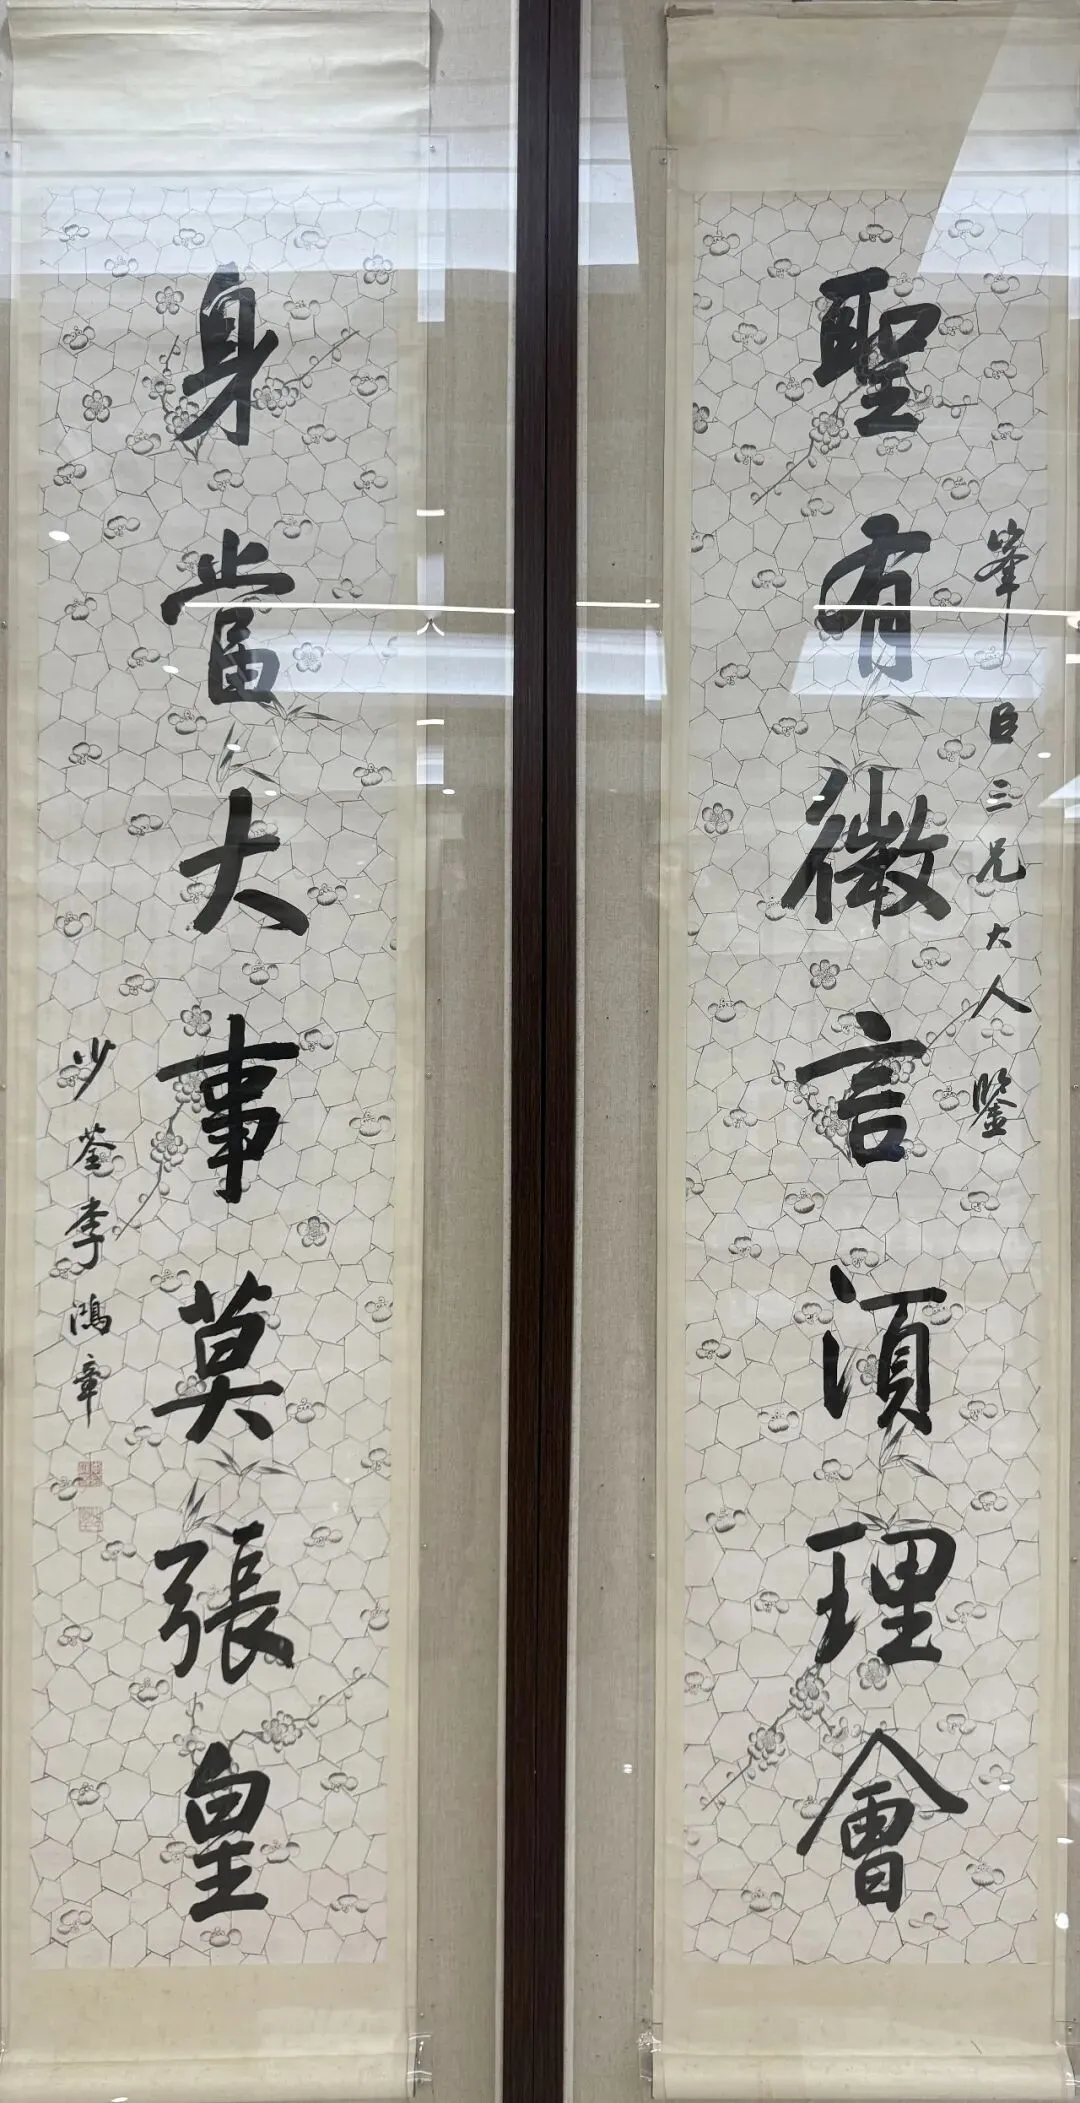 聖有微言須理會
峯臣三兄大人鑒
身當大事莫張皇
少荃李鴻章